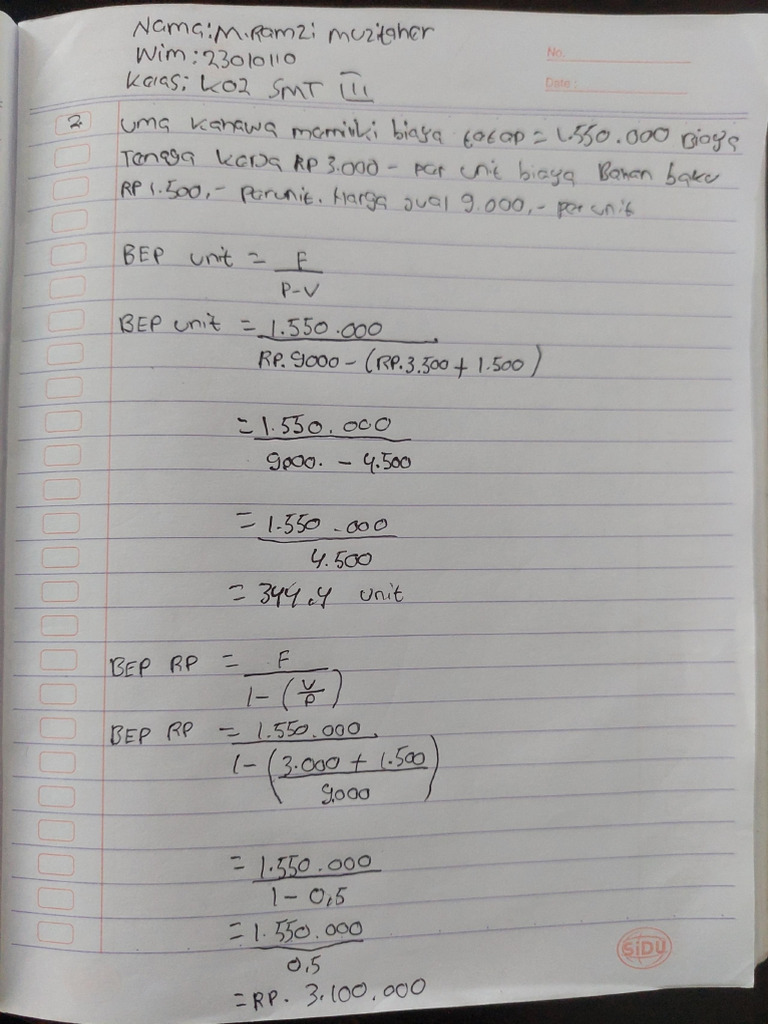 Nama: M. Ramzi muzitaher
Nim: 23010110
Kelas: K02 SMT III
No.
Date:
2 uma Karawa memiliki biaya tetap = 1.550.000 Biaya
Tenaga kerja RP 3.000 - per unit biaya Bahan baku
RP 1.500,- per unit. Harga jual 9.000,- per unit
BEP unit = F
P-V
BEP unit = 1.550.000
RP. 9000 - (RP. 3.500 + 1.500)
= 1.550.000
9000. - 4.500
= 1.550.000
4.500
= 344,4 unit
BEP RP = F
1 - (V/P)
BEP RP = 1.550.000
1 - (3.000 + 1.500
9.000)
= 1.550.000
1 - 0,5
= 1.550.000
0.5
= RP. 3.100.000
SiDU